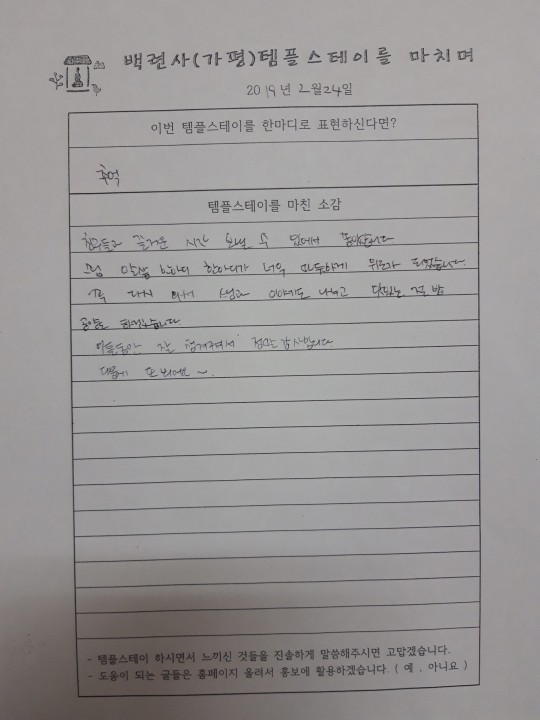 백련사(가평)템플스테이를 마치며
2019년 2월24일
이번 템플스테이를 한마디로 표현하신다면?
추억
템플스테이를 마친 소감
친구들과 즐거운 시간 보낼 수 있어서 좋았습니다
스님 말씀 한마디 한마디가 너무 따뜻하게 위로가 되었습니다.
꼭 다시 와서 스님과 이야기도 나누고 맛있는 밥
공양도 하겠습니다
이틀동안 잘 챙겨주셔서 정말 감사합니다
다음에 또 뵈어요~.
- 템플스테이 하시면서 느끼신 것들을 진솔하게 말씀해주시면 고맙겠습니다.
- 도움이 되는 글들은 홈페이지 올려서 홍보에 활용하겠습니다. ( 예 , 아니요 )